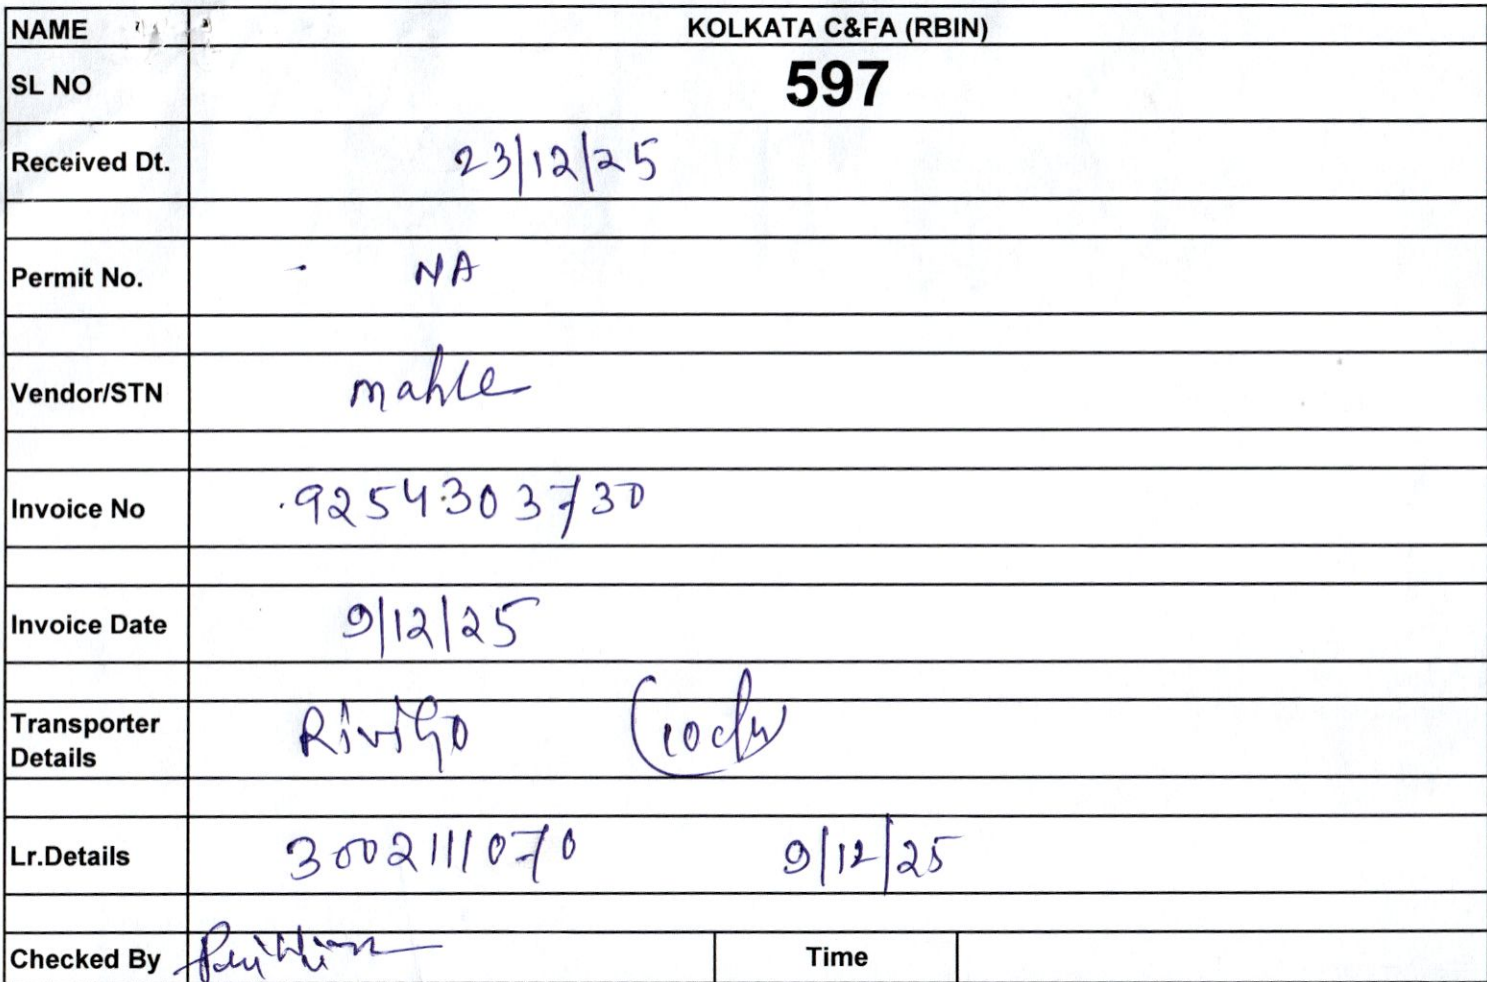 NAME KOLKATA C&FA (RBIN)
SL NO 597
Received Dt. 23/12/25
Permit No. - NA
Vendor/STN mahle
Invoice No 9254303730
Invoice Date 9/12/25
Transporter Rivigo
Details
Lr.Details 3002111070 9/12/25
Checked By Time